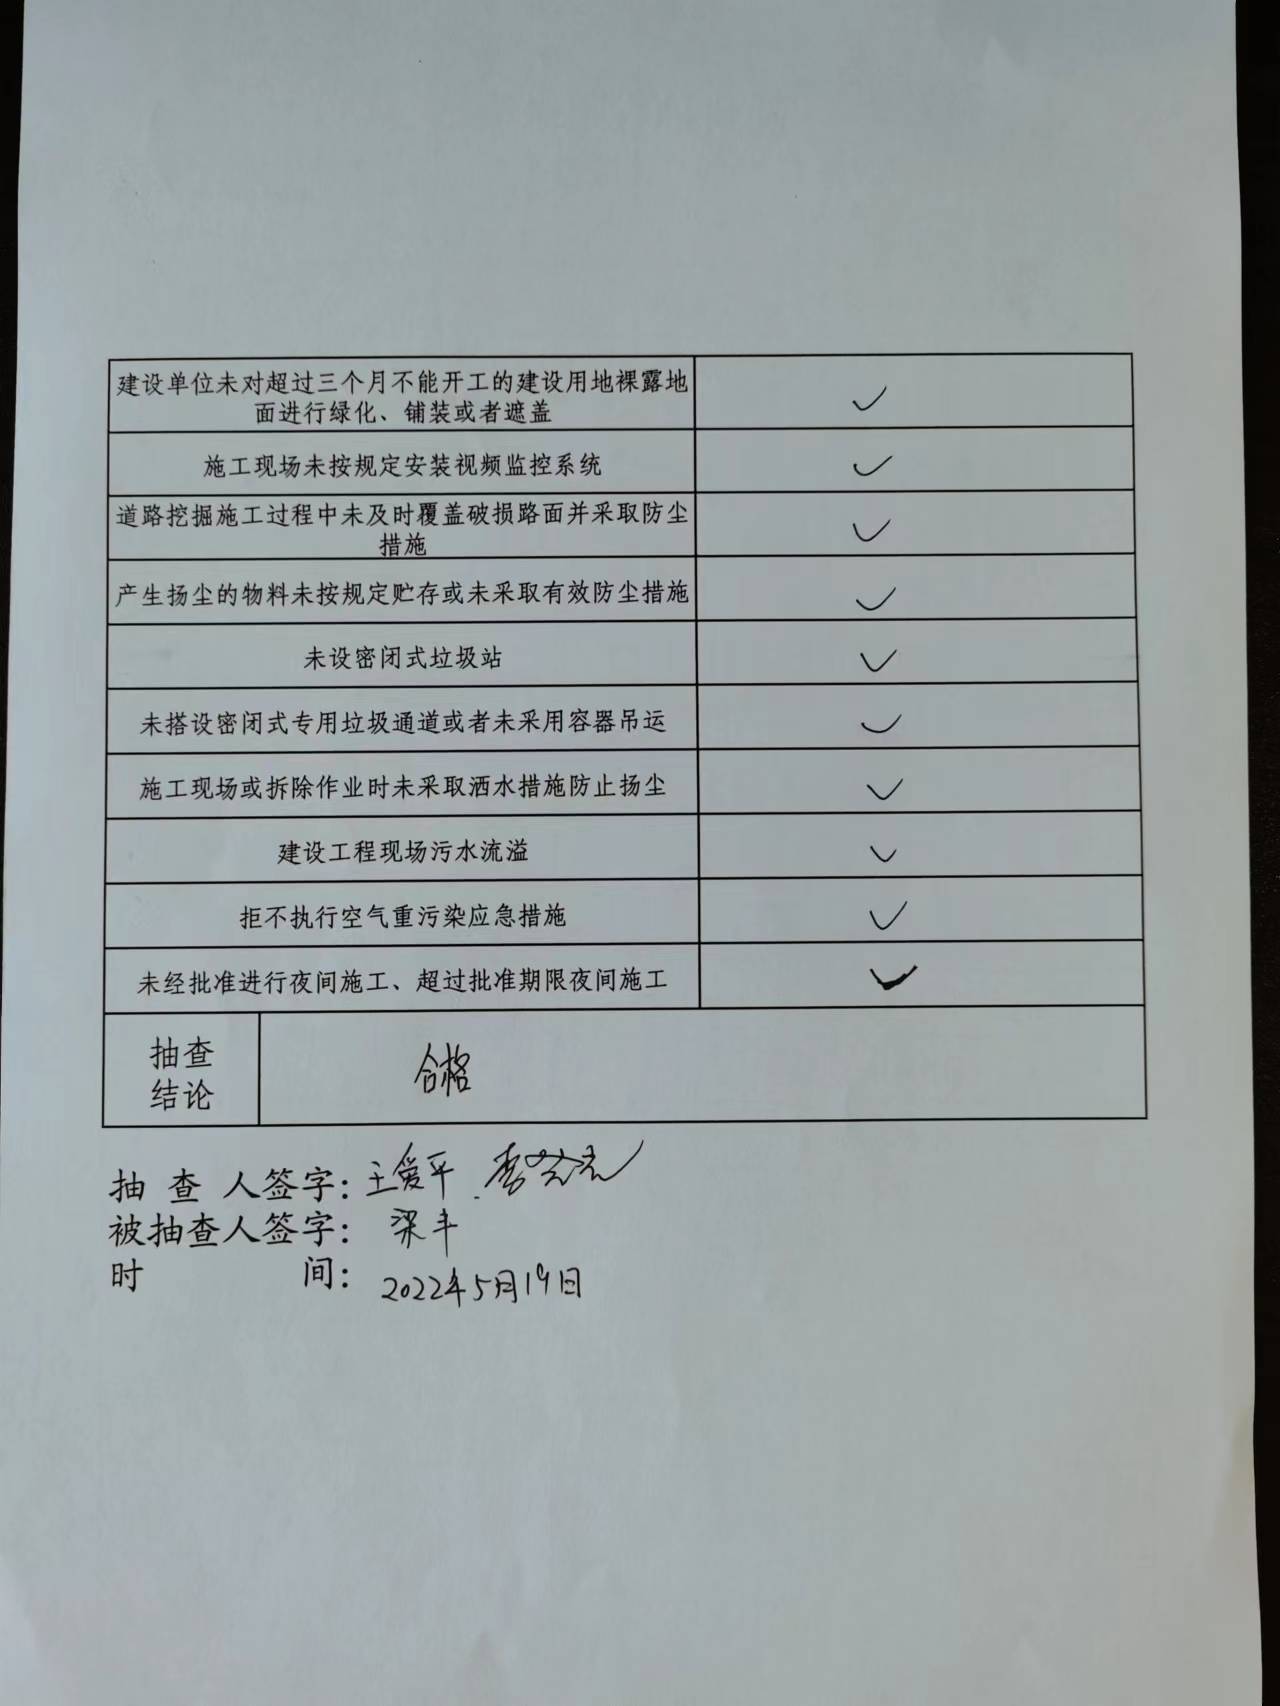 建设单位未对超过三个月不能开工的建设用地裸露地
面进行绿化、铺装或者遮盖
施工现场未按规定安装视频监控系统
道路挖掘施工过程中未及时覆盖破损路面并采取防尘
措施
产生扬尘的物料未按规定贮存或未采取有效防尘措施
未设密闭式垃圾站
未搭设密闭式专用垃圾通道或者未采用容器吊运
施工现场或拆除作业时未采取洒水措施防止扬尘
建设工程现场污水流溢
拒不执行空气重污染应急措施
未经批准进行夜间施工、超过批准期限夜间施工
抽查
结论
合格
抽查人签字：王爱平
被抽查人签字：梁丰
时间：2022年5月19日